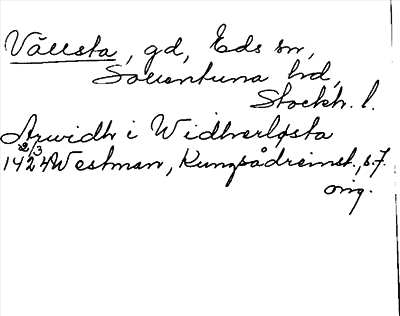 Vällsta, gd, Eds sn,
Sollentuna hd,
Stockh. l.
Arvidh i Widherløsta
2/3
1424 Westman, Kungsådreinst., s. 7.
orig.